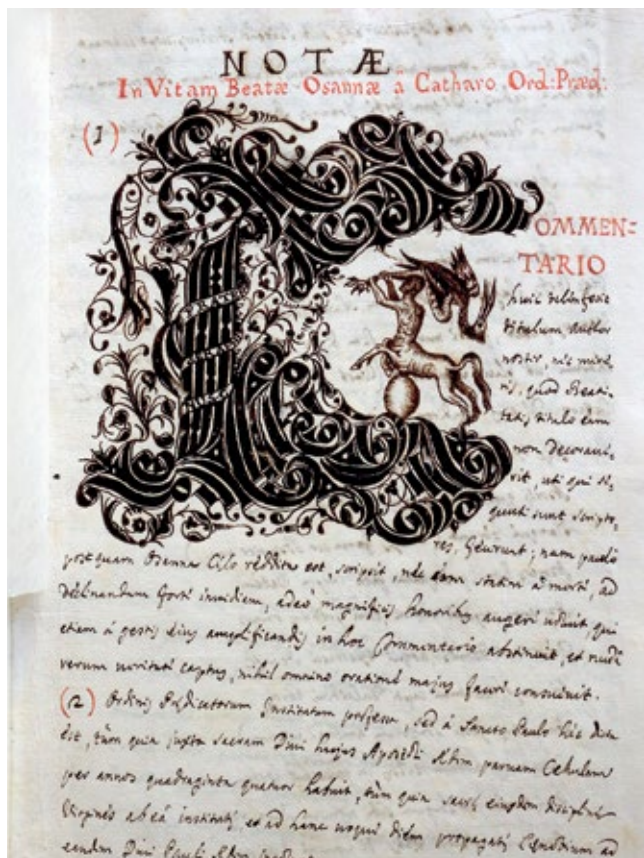 NOTÆ
In Vitam Beatæ Osannæ â Catharo Ord: Præd:
(1)
COMMEN=
TARIO
huic
titulum Author
noster, nec
ris, quod Beati-
tatis titulo eum
non decoraui-
rit, uti qui se-
quuti sunt scripto-
res, ; nam paulò
postquam Osanna Cælo reddita est, scripsit, nec eam statim à morte, ad
declinandam forte inuidiam, adeò magnificis honoribus augeri uoluit, qui
etiam á gestis eius amplificandis in hoc Commentario abstinuit, et nudâ
rerum ueritate captus, nihil omnino oratione majus fieri consueuit.
(2) Ordinis Prædicatorum Institutum professa, sed á Sancto Paulo hic dicta
est, tùm quia juxta sacram Diui hujus Apostoli Ædem paruam Cellulam
per annos quadraginta quatuor habuit, tùm quia sacris eiusdem disciplinæ
Virgines ab eâ institutæ et ad hanc usque diem ad
eandem Diui Pauli Ædem